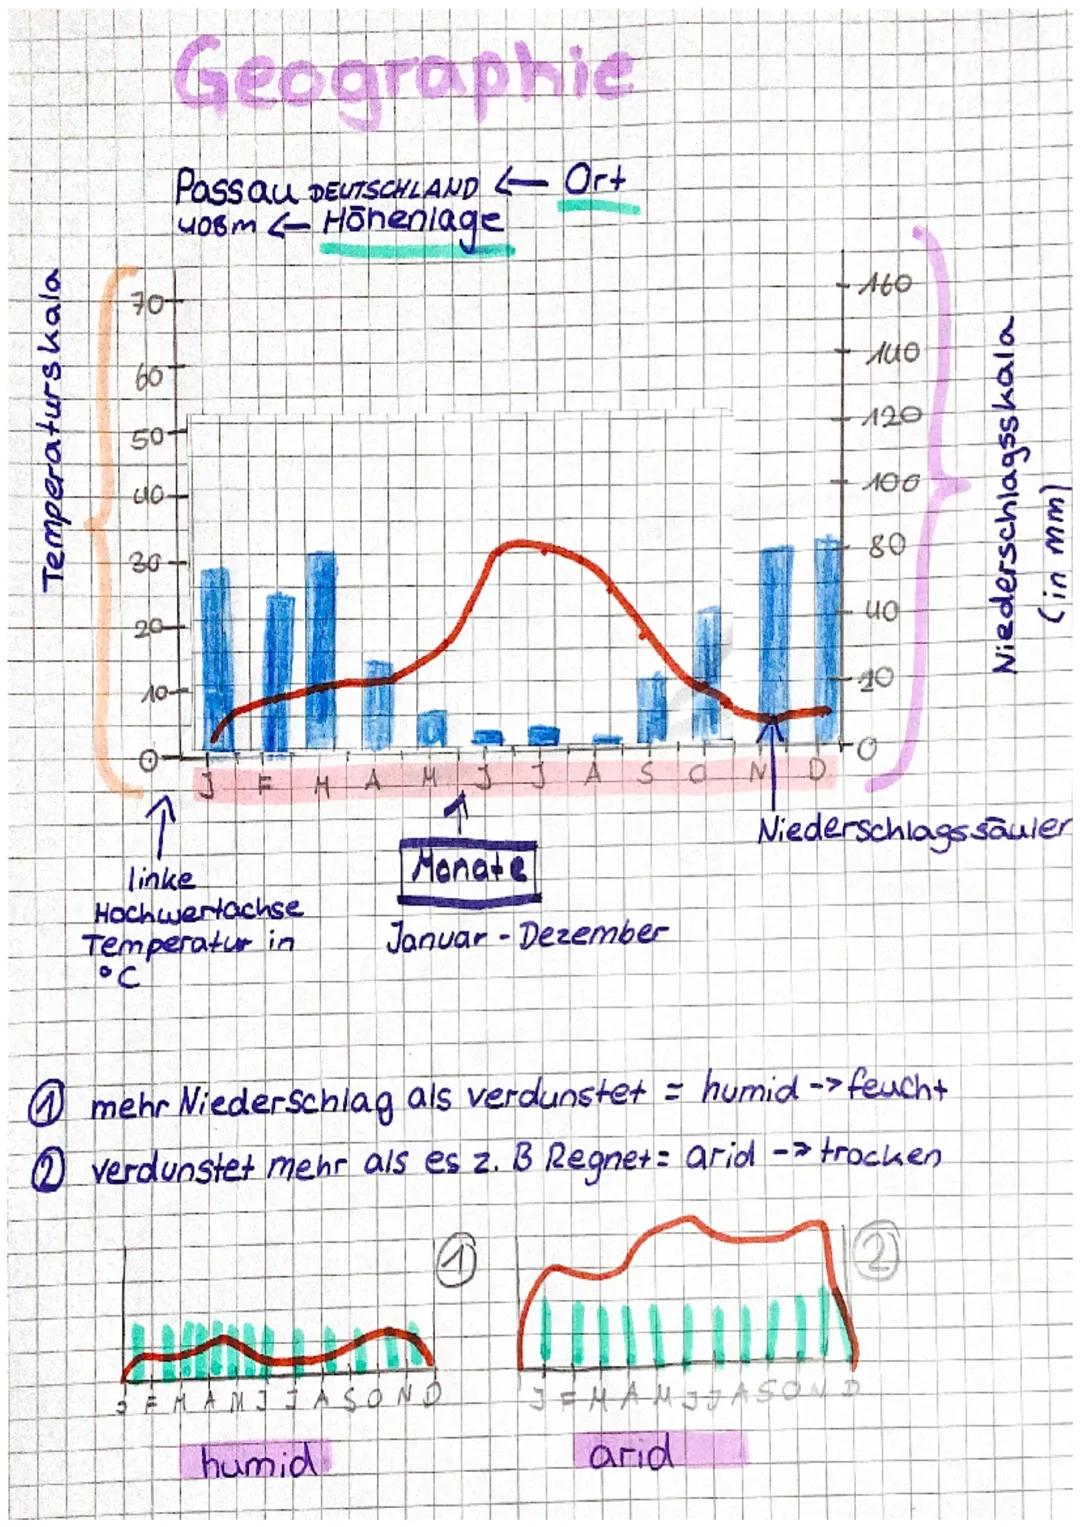 Geographie
Passau DEUTSCHLAND ← Ort
408m ← Höhenlage
Temperaturskala
70
60
50
40
30
20
10
0
160
140
120
100
80
40
20
0
Niederschlagsskala
(in mm)
J F M A M J J A S O N D
linke
Hochwertachse
Temperatur in
°C
Monate
Januar - Dezember
Niederschlagssäulen
① mehr Niederschlag als verdunstet = humid -> feucht
② verdunstet mehr als es z. B Regnet = arid -> trocken
①
J F M A M J J A S O N D
humid
②
J F M A M J J A S O N D
arid